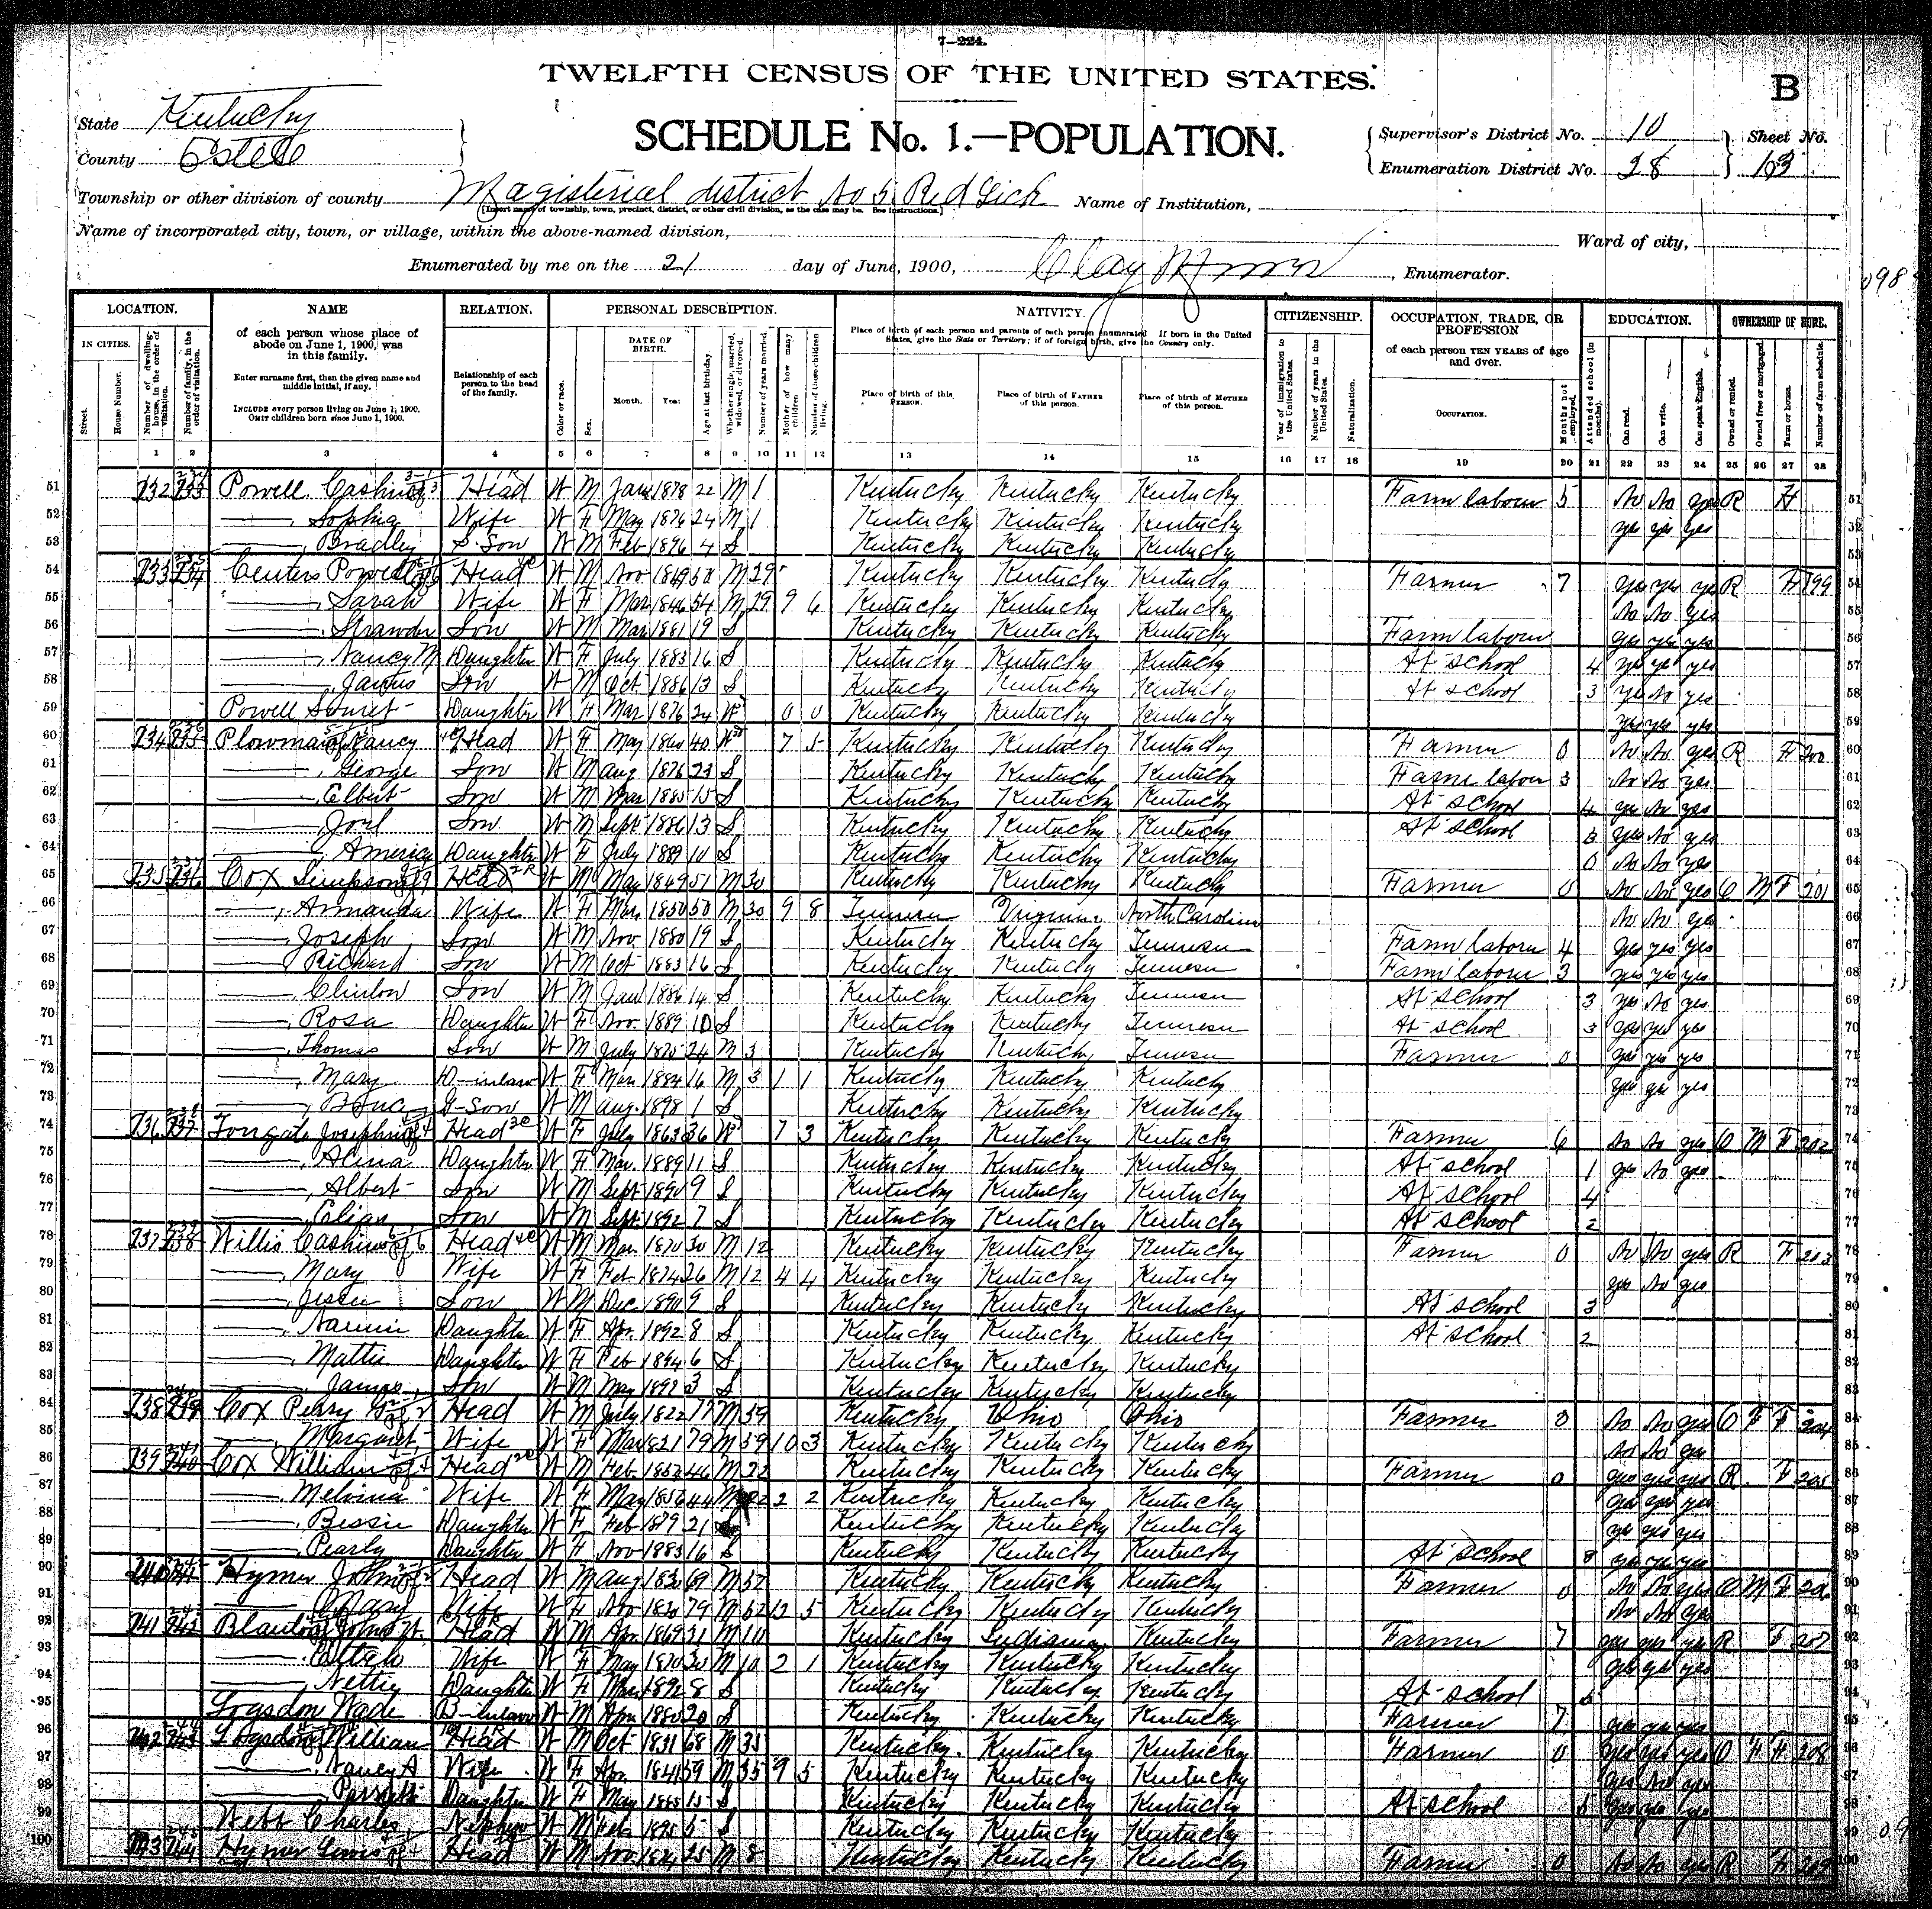 7—224.
TWELFTH CENSUS OF THE UNITED STATES.
B
State Kentucky
SCHEDULE No. 1.—POPULATION.
Supervisor's District No. 10 Sheet No.
County Estell
Enumeration District No. 28
Township or other division of county Magisterial district No 5 Red Lick Name of Institution,
[Insert name of township, town, precinct, district, or other civil division, as the case may be. See instructions.]
Name of incorporated city, town, or village, within the above-named division, Ward of city,
Enumerated by me on the 21 day of June, 1900, Clay , Enumerator.
LOCATION. NAME RELATION. PERSONAL DESCRIPTION. NATIVITY. CITIZENSHIP. OCCUPATION, TRADE, OR PROFESSION EDUCATION. OWNERSHIP OF HOME.
IN CITIES. Street. House Number. Number of dwelling-house, in the order of visitation. Number of family, in the order of visitation.
of each person whose place of abode on June 1, 1900, was in this family.
Enter surname first, then the given name and middle initial, if any.
INCLUDE every person living on June 1, 1900. OMIT children born since June 1, 1900.
Relationship of each person to the head of the family.
Color or race. Sex. DATE OF BIRTH. Month. Year. Age at last birthday. Whether single, married, widowed, or divorced. Number of years married. Mother of how many children Number of these children living.
Place of birth of each person and parents of each person enumerated. If born in the United States, give the State or Territory; if of foreign birth, give the Country only.
Place of birth of this PERSON. Place of birth of FATHER of this person. Place of birth of MOTHER of this person.
Year of immigration to the United States. Number of years in the United States. Naturalization.
of each person TEN YEARS of age and over.
OCCUPATION. Months not employed.
Attended school (in months). Can read. Can write. Can speak English.
Owned or rented. Owned free or mortgaged. Farm or house. Number of farm schedule.
1 2 3 4 5 6 7 8 9 10 11 12 13 14 15 16 17 18 19 20 21 22 23 24 25 26 27 28
51 232 Powell Head W M Jan 1878 22 M 1 Kentucky Kentucky Kentucky Farm labour 5 No No yes R H 51
52 Sophia Wife W F May 1876 24 M 1 Kentucky Kentucky Kentucky yes yes yes 52
53 Bradley S-Son W M Feb 1896 4 S Kentucky Kentucky Kentucky 53
54 233 Centers Powell Head W M Nov 1849 50 M 29 Kentucky Kentucky Kentucky Farmer 7 yes yes yes R F 199 54
55 Sarah Wife W F Mar 1846 54 M 29 9 6 Kentucky Kentucky Kentucky No No yes 55
56 Strawder Son W M Mar 1881 19 S Kentucky Kentucky Kentucky Farm labour yes yes yes 56
57 Nancy M Daughter W F July 1883 16 S Kentucky Kentucky Kentucky At school 4 yes yes yes 57
58 James Son W M Oct 1886 13 S Kentucky Kentucky Kentucky At school 3 yes No yes 58
59 Powell Daughter W F Mar 1876 24 Wd 0 0 Kentucky Kentucky Kentucky yes yes yes 59
60 234 Plowman Nancy Head W F May 1860 40 Wd 7 5 Kentucky Kentucky Kentucky Farmer 0 No No yes R F 200 60
61 George Son W M Aug 1876 23 S Kentucky Kentucky Kentucky Farm labour 3 No No yes 61
62 Elbert Son W M Mar 1885 15 S Kentucky Kentucky Kentucky At school 4 yes No yes 62
63 Joel Son W M Sept 1886 13 S Kentucky Kentucky Kentucky At school 3 yes No yes 63
64 America Daughter W F July 1889 10 S Kentucky Kentucky Kentucky 0 No No yes 64
65 235 Cox Simpson Head W M May 1849 51 M 30 Kentucky Kentucky Kentucky Farmer 0 No No yes O M F 201 65
66 Armanda Wife W F Mar 1850 50 M 30 9 8 Virginia North Carolina No No yes 66
67 Joseph Son W M Nov 1880 19 S Kentucky Kentucky Farm labour 4 yes yes yes 67
68 Richard Son W M Oct 1883 16 S Kentucky Kentucky Farm labour 3 yes yes yes 68
69 Clinton Son W M Jan 1886 14 S Kentucky Kentucky At school 3 yes No yes 69
70 Rosa Daughter W F Nov 1889 10 S Kentucky Kentucky At school 3 yes yes yes 70
71 Thomas Son W M July 1875 24 M 3 Kentucky Kentucky Farmer 0 yes yes yes 71
72 Mary D-inlaw W F Mar 1884 16 M 3 1 1 Kentucky Kentucky Kentucky yes yes yes 72
73 G-Son W M Aug. 1898 1 S Kentucky Kentucky Kentucky 73
74 236 Head W F July 1863 36 Wd 7 3 Kentucky Kentucky Kentucky Farmer 6 No No yes O M F 202 74
75 Daughter W F Mar. 1889 11 S Kentucky Kentucky Kentucky At school 1 yes No yes 75
76 Albert Son W M Sept 1890 9 S Kentucky Kentucky Kentucky At school 4 76
77 Elias Son W M Sept 1892 7 S Kentucky Kentucky Kentucky At school 2 77
78 237 Willis Head W M Mar. 1870 30 M 12 Kentucky Kentucky Kentucky Farmer 0 No No yes R F 203 78
79 Mary Wife W F Feb 1874 26 M 12 4 4 Kentucky Kentucky Kentucky yes No yes 79
80 Jessee Son W M Dec 1890 9 S Kentucky Kentucky Kentucky At school 3 80
81 Nannie Daughter W F Apr. 1892 8 S Kentucky Kentucky Kentucky At school 2 81
82 Mattie Daughter W F Feb 1894 6 S Kentucky Kentucky Kentucky 82
83 James Son W M May 1897 3 S Kentucky Kentucky Kentucky 83
84 238 Cox Perry Head W M July 1822 77 M 59 Kentucky Ohio Ohio Farmer 0 No No yes O F F 204 84
85 Margaret Wife W F Mar 1821 79 M 59 10 3 Kentucky Kentucky Kentucky No No yes 85
86 239 Cox William Head W M Feb 46 M 22 Kentucky Kentucky Kentucky Farmer 0 yes yes yes R F 205 86
87 Melvina Wife W F May 1856 44 M 22 2 2 Kentucky Kentucky Kentucky yes yes yes 87
88 Bessie Daughter W F Feb 1879 21 Kentucky Kentucky Kentucky yes yes yes 88
89 Pearly Daughter W F Nov 1883 16 S Kentucky Kentucky Kentucky At school yes yes yes 89
90 240 Hymer John Head W M Aug 1830 69 M 52 Kentucky Kentucky Kentucky Farmer 0 No No yes O M F 206 90
91 Wife W F Nov 1820 79 M 52 12 5 Kentucky Kentucky Kentucky No No yes 91
92 241 Blanton John W. Head W M Apr 1869 31 M 10 Kentucky Indiana Kentucky Farmer 7 yes yes yes R F 207 92
93 Wife W F May 1870 30 M 10 2 1 Kentucky Kentucky Kentucky yes yes yes 93
94 Nettie Daughter W F Mar 1892 8 S Kentucky Kentucky Kentucky At school 94
95 Logsdon Wade B-inlaw W M Apr 1880 20 S Kentucky Kentucky Kentucky Farmer 7 yes yes yes 95
96 242 Logsdon William Head W M Oct 1831 68 M 35 Kentucky Kentucky Kentucky Farmer 0 yes yes yes O F F 208 96
97 Nancy A Wife W F Apr 1841 59 M 35 9 5 Kentucky Kentucky Kentucky yes No yes 97
98 Daughter W F May 1885 15 S Kentucky Kentucky Kentucky At school 5 yes yes yes 98
99 Webb Charles Nephew W M Feb 1895 5 S Kentucky Kentucky Kentucky 99
100 243 Hymer Lewis Head W M Nov 25 M 8 Kentucky Kentucky Kentucky Farmer 0 No No yes R F 209 100